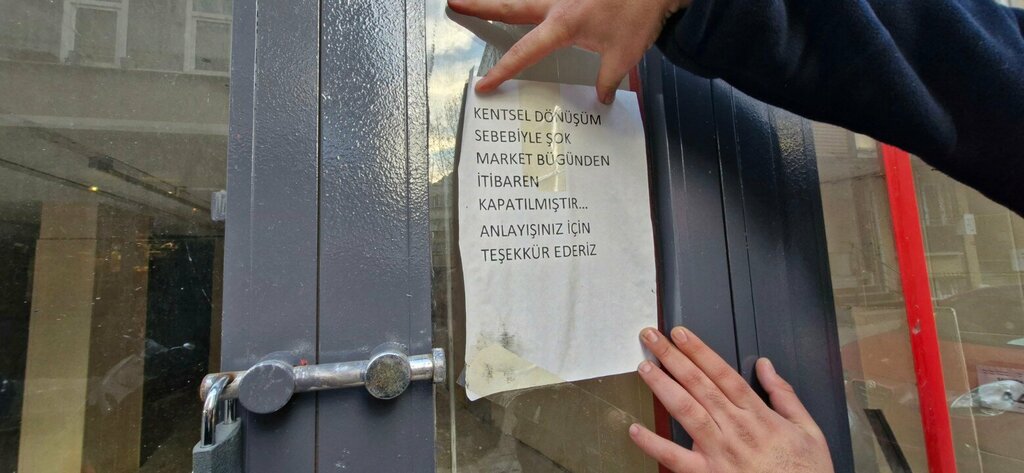 KENTSEL DÖNÜŞÜM
SEBEBİYLE ŞOK
MARKET BUGÜNDEN
İTİBAREN
KAPATILMIŞTIR...
ANLAYIŞINIZ İÇİN
TEŞEKKÜR EDERİZ